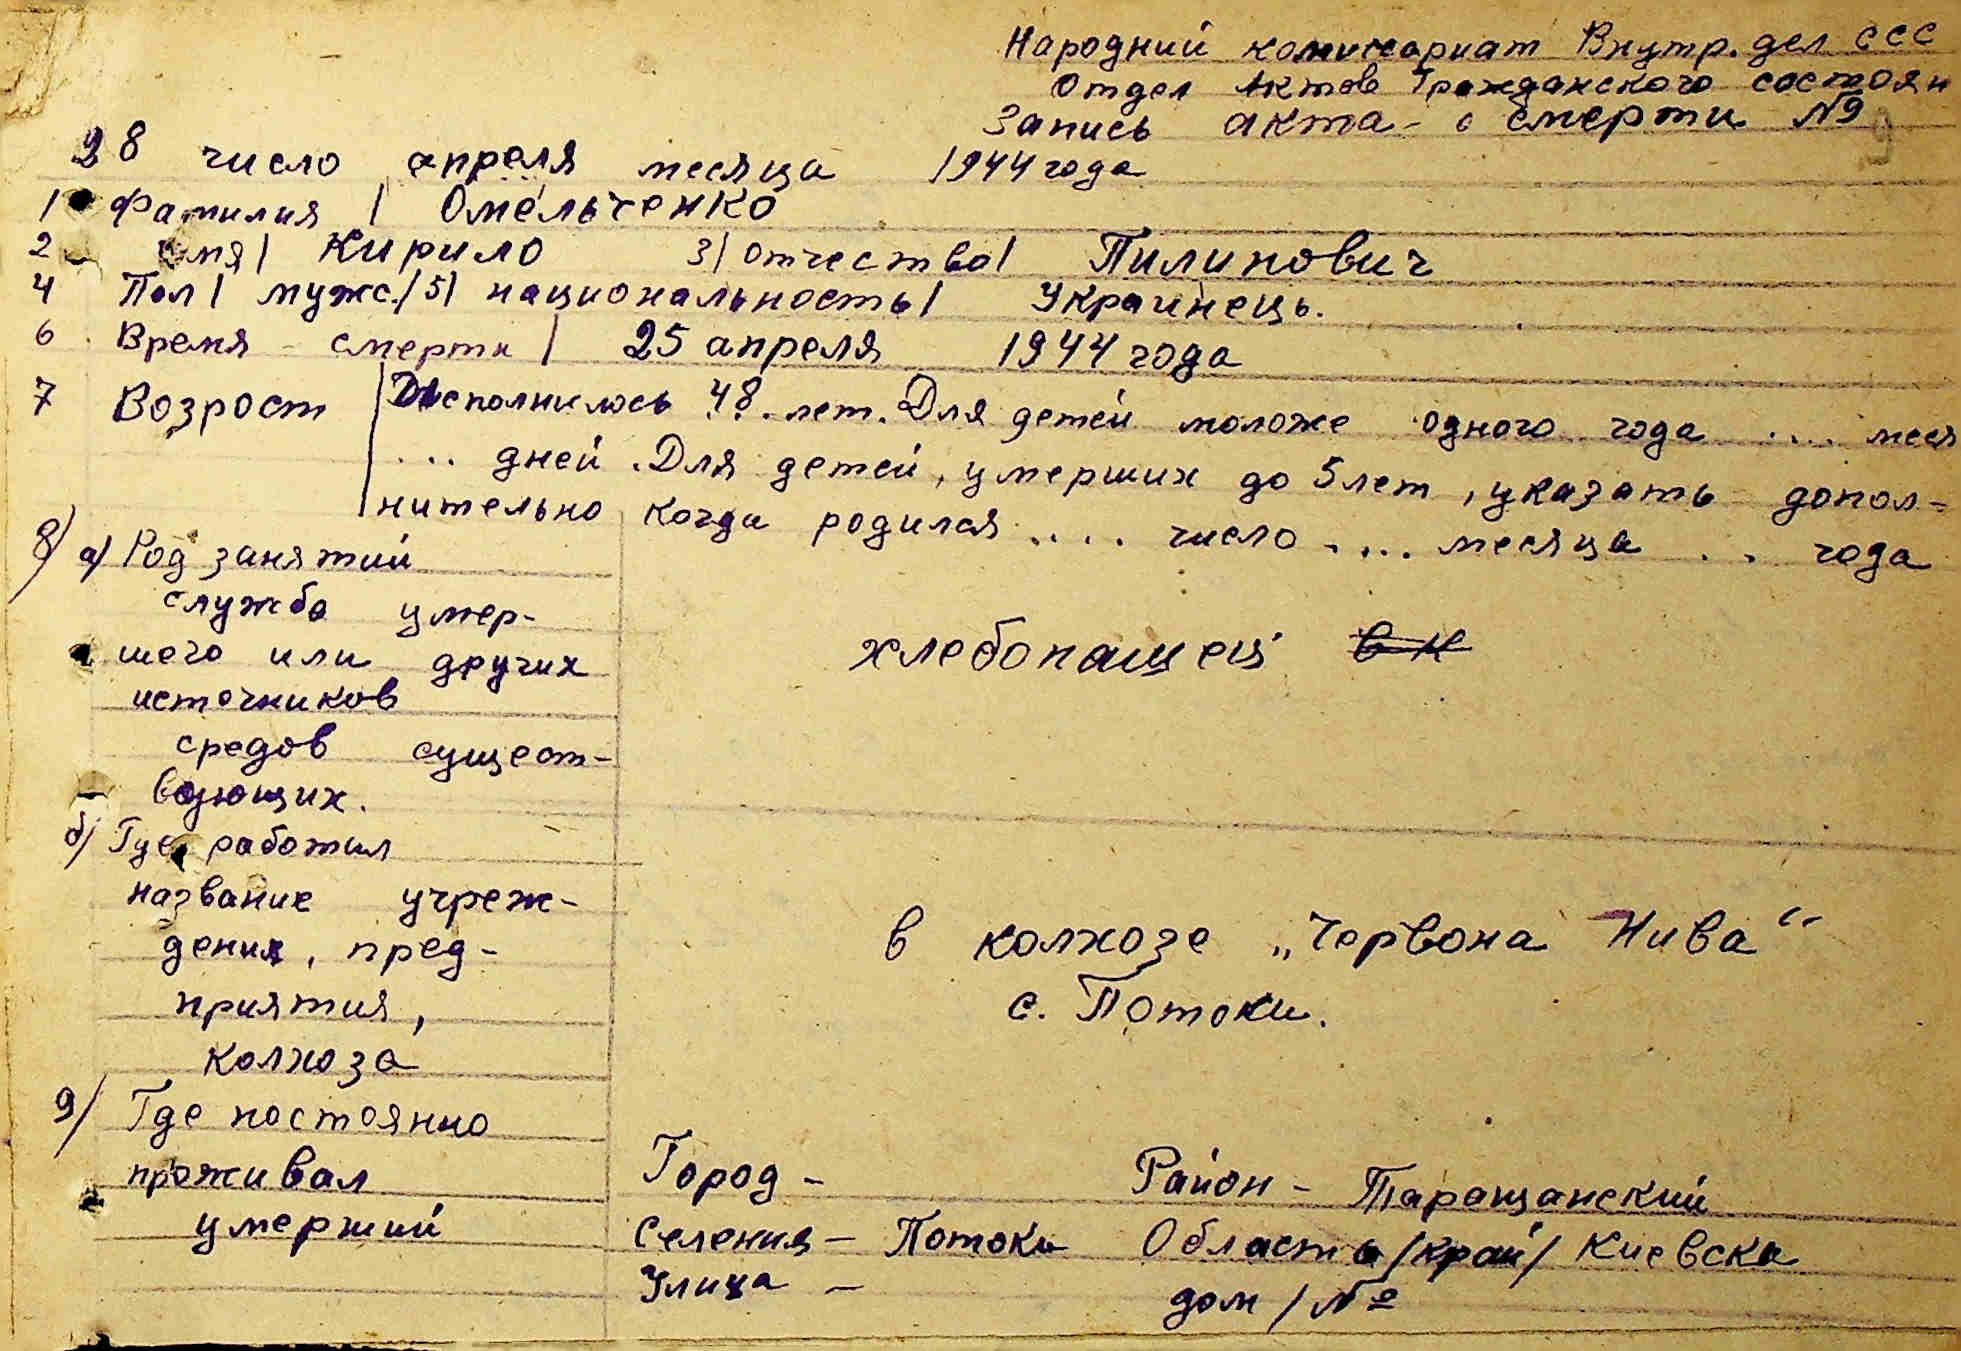 Народний комиссариат Внутр. дел ССС
Отдел Актов Гражданского состоян
Запись акта - о смерти №9
28 число апреля месяца 1944 года
1 Фамилия | Омельченко
2 имя | Кирило 3| отчество | Пилипович
4 Пол | мужс. | 5| национальность | Украинець.
6 Время - смерти | 25 апреля 1944 года
7 Возрост | Исполнилось 48. лет. Для детей моложе одного года .... меся
... дней. Для детей, умерших до 5 лет, указать допол-
нительно когда родился .... число .... месяца .. года
8) а) Род занятий
служба умер-
шего или других
источников
средов сущест-
вующих.
хлебопашец в к
б) Где работил
название учреж-
дения, пред-
приятия,
колхоза
в колхозе „Червона Нива“
с. Потоки.
9) Где постоянно
проживал
умерший
Город - Район - Таращанский
Селения - Потоки Область /край/ Киевска
Улица - дом / №